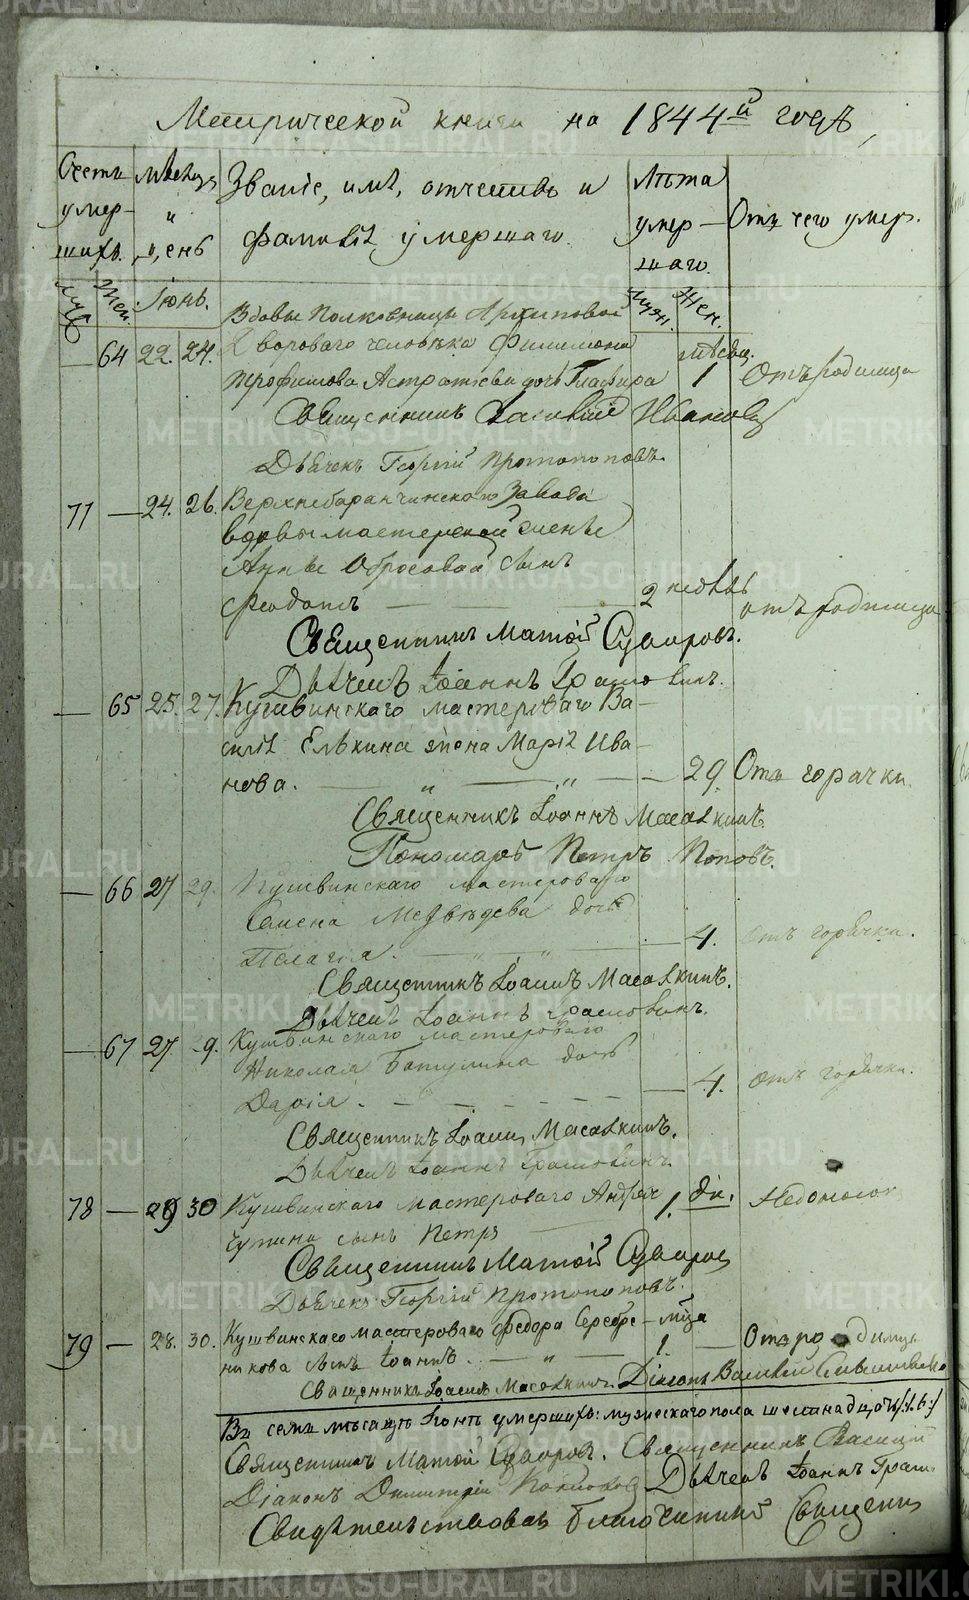 Метрической книги на 1844й годъ,
Счетъ умер-шихъ. Мѣсяцъ и день Званіе, имя, отчество и фамилія умершаго. Лѣта умер-шаго. Отъ чего умер.
Муж. Жен. Іюнь. Муж. Жен.
Вдовы Полковницы Архиповой
— 64 22. 24. Двороваго человѣка Филимона мѣсяц.
Трофимова Астратіева дочь Глафира 1 Отъ родимца
Священникъ Василій Ивановъ
Дьячекъ Георгій Протопоповъ.
77 — 24. 26. Верхнебаранчинскаго Завода
вдовы мастерской жены
Анны Обросовой сынъ
Феодотъ — 2 недѣль отъ родимца
Священникъ Матѳій Суворовъ.
Дьячекъ Іоаннъ Грамолинъ.
— 65 25. 27. Кушвинскаго мастероваго Ва-
силія Елькина жена Марія Ива-
нова. — „ — „ — 29. Отъ горячки.
Священникъ Іоаннъ Масалкинъ.
Пономарь Петръ Поповъ.
— 66 27 29. Кушвинскаго мастероваго
Семена Медвѣдева дочь
Пелагія. — „ „ — 4. отъ горячки.
Священникъ Іоаннъ Масалкинъ.
Дьячекъ Іоаннъ Грамолинъ.
— 67 27 9. Кушвинскаго мастероваго
Николая Батулина дочь
Дарія. — 4. отъ горячки.
Священникъ Іоаннъ Масалкинъ.
Дьячекъ Іоаннъ Грамолинъ.
78 — 29 30 Кушвинскаго мастероваго Андрея 1. дн. Недоносок
сынъ Петръ
Священникъ Матѳій Суворов
Дьячекъ Георгій Протопоповъ.
79 — 28. 30. Кушвинскаго мастероваго Федора Серебре- мѣца
никова сынъ Іоаннъ. — „ 1. — Отъ родимца
Священникъ Іоаннъ Масалкинъ. Діаконъ Василій
Въ семъ мѣсяцѣ Іюнѣ умершихъ: мужескаго пола шестнадцать /:16:/
Священникъ Матѳій Суворовъ. Священникъ Василій
Діаконъ Димитрій Дьячекъ Іоаннъ Грам.
Свидѣтельствовалъ Благочинный Священн
METRIKI.GASO-URAL.RU